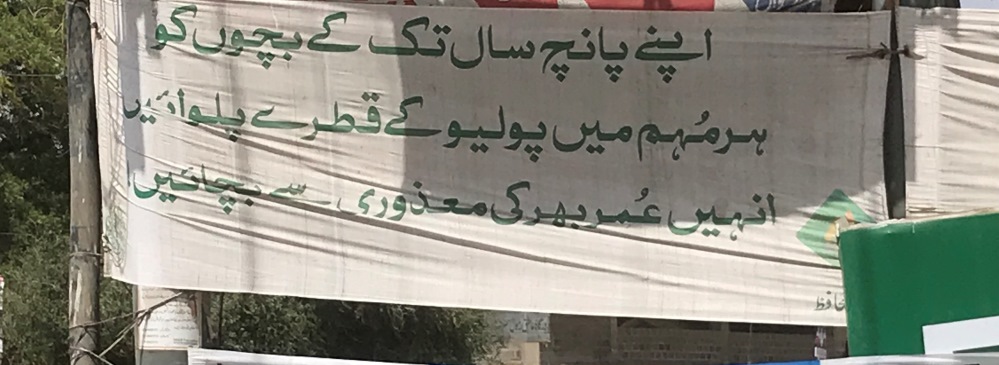 اپنے پانچ سال تک کے بچوں کو
ہر مُہم میں پولیو کے قطرے پلوائیں
انہیں عُمر بھر کی معذوری سے بچائیں!
حافظ